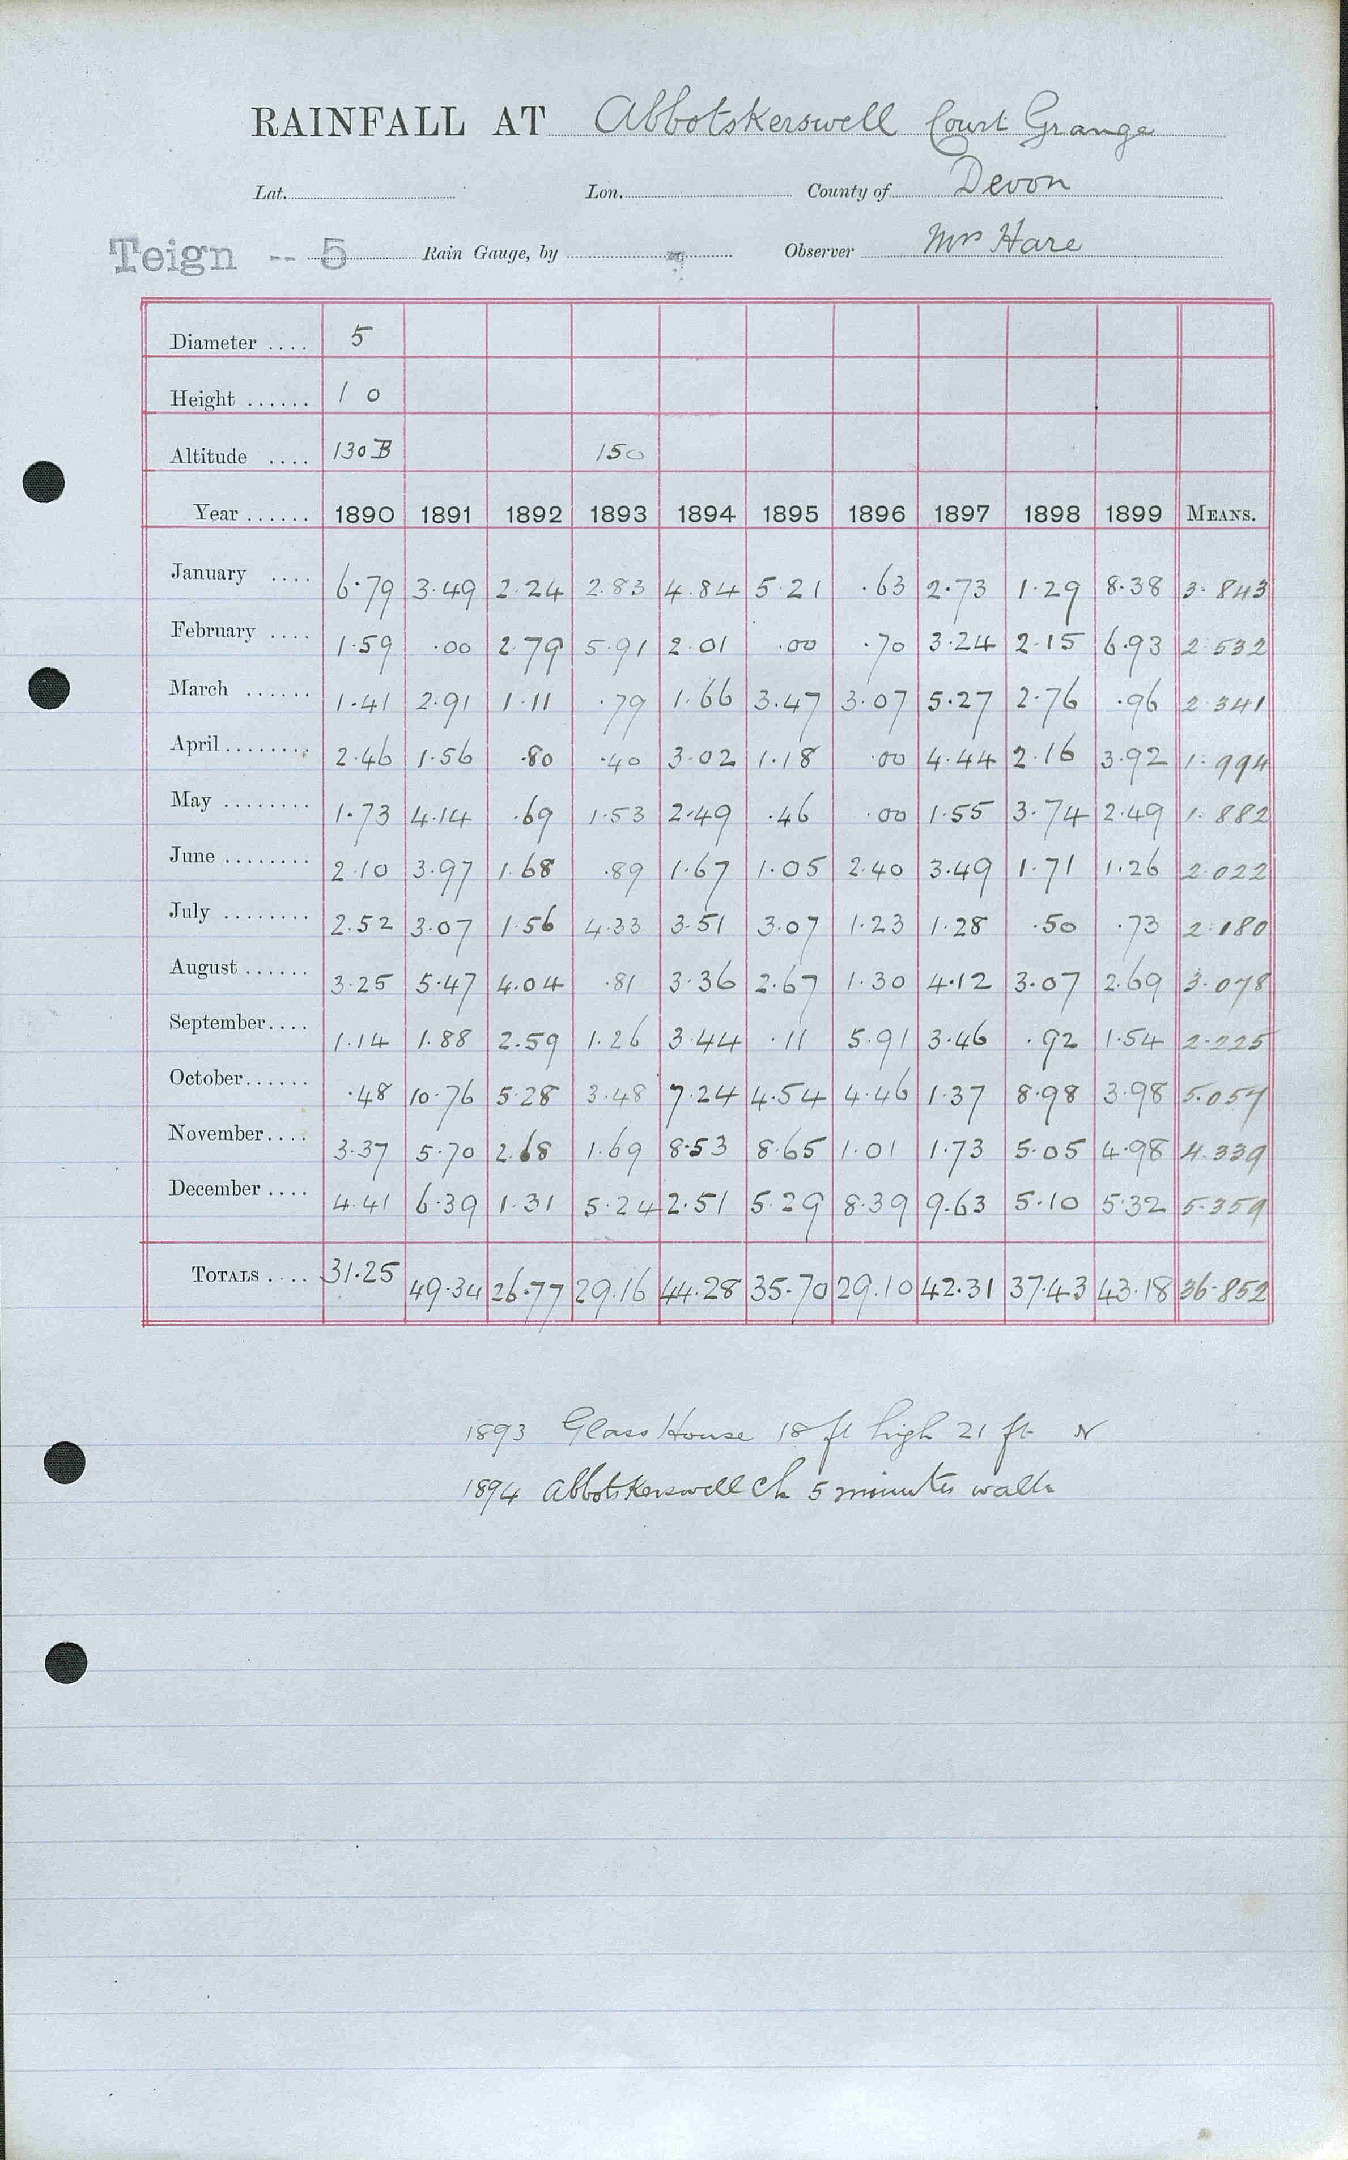 RAINFALL AT Abbotskerswell Court Grange
Lat. Lon. County of Devon
Teign -- 5 Rain Gauge, by Observer Mrs Hare
Diameter .... 5
Height ...... 1 0
Altitude .... 130 B 150
Year ...... 1890 1891 1892 1893 1894 1895 1896 1897 1898 1899 MEANS.
January .... 6.79 3.49 2.24 2.83 4.84 5.21 .63 2.73 1.29 8.38 3.843
February .... 1.59 .00 2.79 5.91 2.01 .00 .70 3.24 2.15 6.93 2.532
March ...... 1.41 2.91 1.11 .79 1.66 3.47 3.07 5.27 2.76 .96 2.341
April ........ 2.46 1.56 .80 .40 3.02 1.18 .00 4.44 2.16 3.92 1.994
May ........ 1.73 4.14 .69 1.53 2.49 .46 .00 1.55 3.74 2.49 1.882
June ........ 2.10 3.97 1.68 .89 1.67 1.05 2.40 3.49 1.71 1.26 2.022
July ........ 2.52 3.07 1.56 4.33 3.51 3.07 1.23 1.28 .50 .73 2.180
August ...... 3.25 5.47 4.04 .81 3.36 2.67 1.30 4.12 3.07 2.69 3.078
September.... 1.14 1.88 2.59 1.26 3.44 .11 5.91 3.46 .92 1.54 2.225
October...... .48 10.76 5.28 3.48 7.24 4.54 4.46 1.37 8.98 3.98 5.057
November.... 3.37 5.70 2.68 1.69 8.53 8.65 1.01 1.73 5.05 4.98 4.339
December .... 4.41 6.39 1.31 5.24 2.51 5.29 8.39 9.63 5.10 5.32 5.359
TOTALS .... 31.25 49.34 26.77 29.16 44.28 35.70 29.10 42.31 37.43 43.18 36.852
1893 Glass House 18 ft high 21 ft N
1894 Abbotskerswell Ch 5 minutes walk